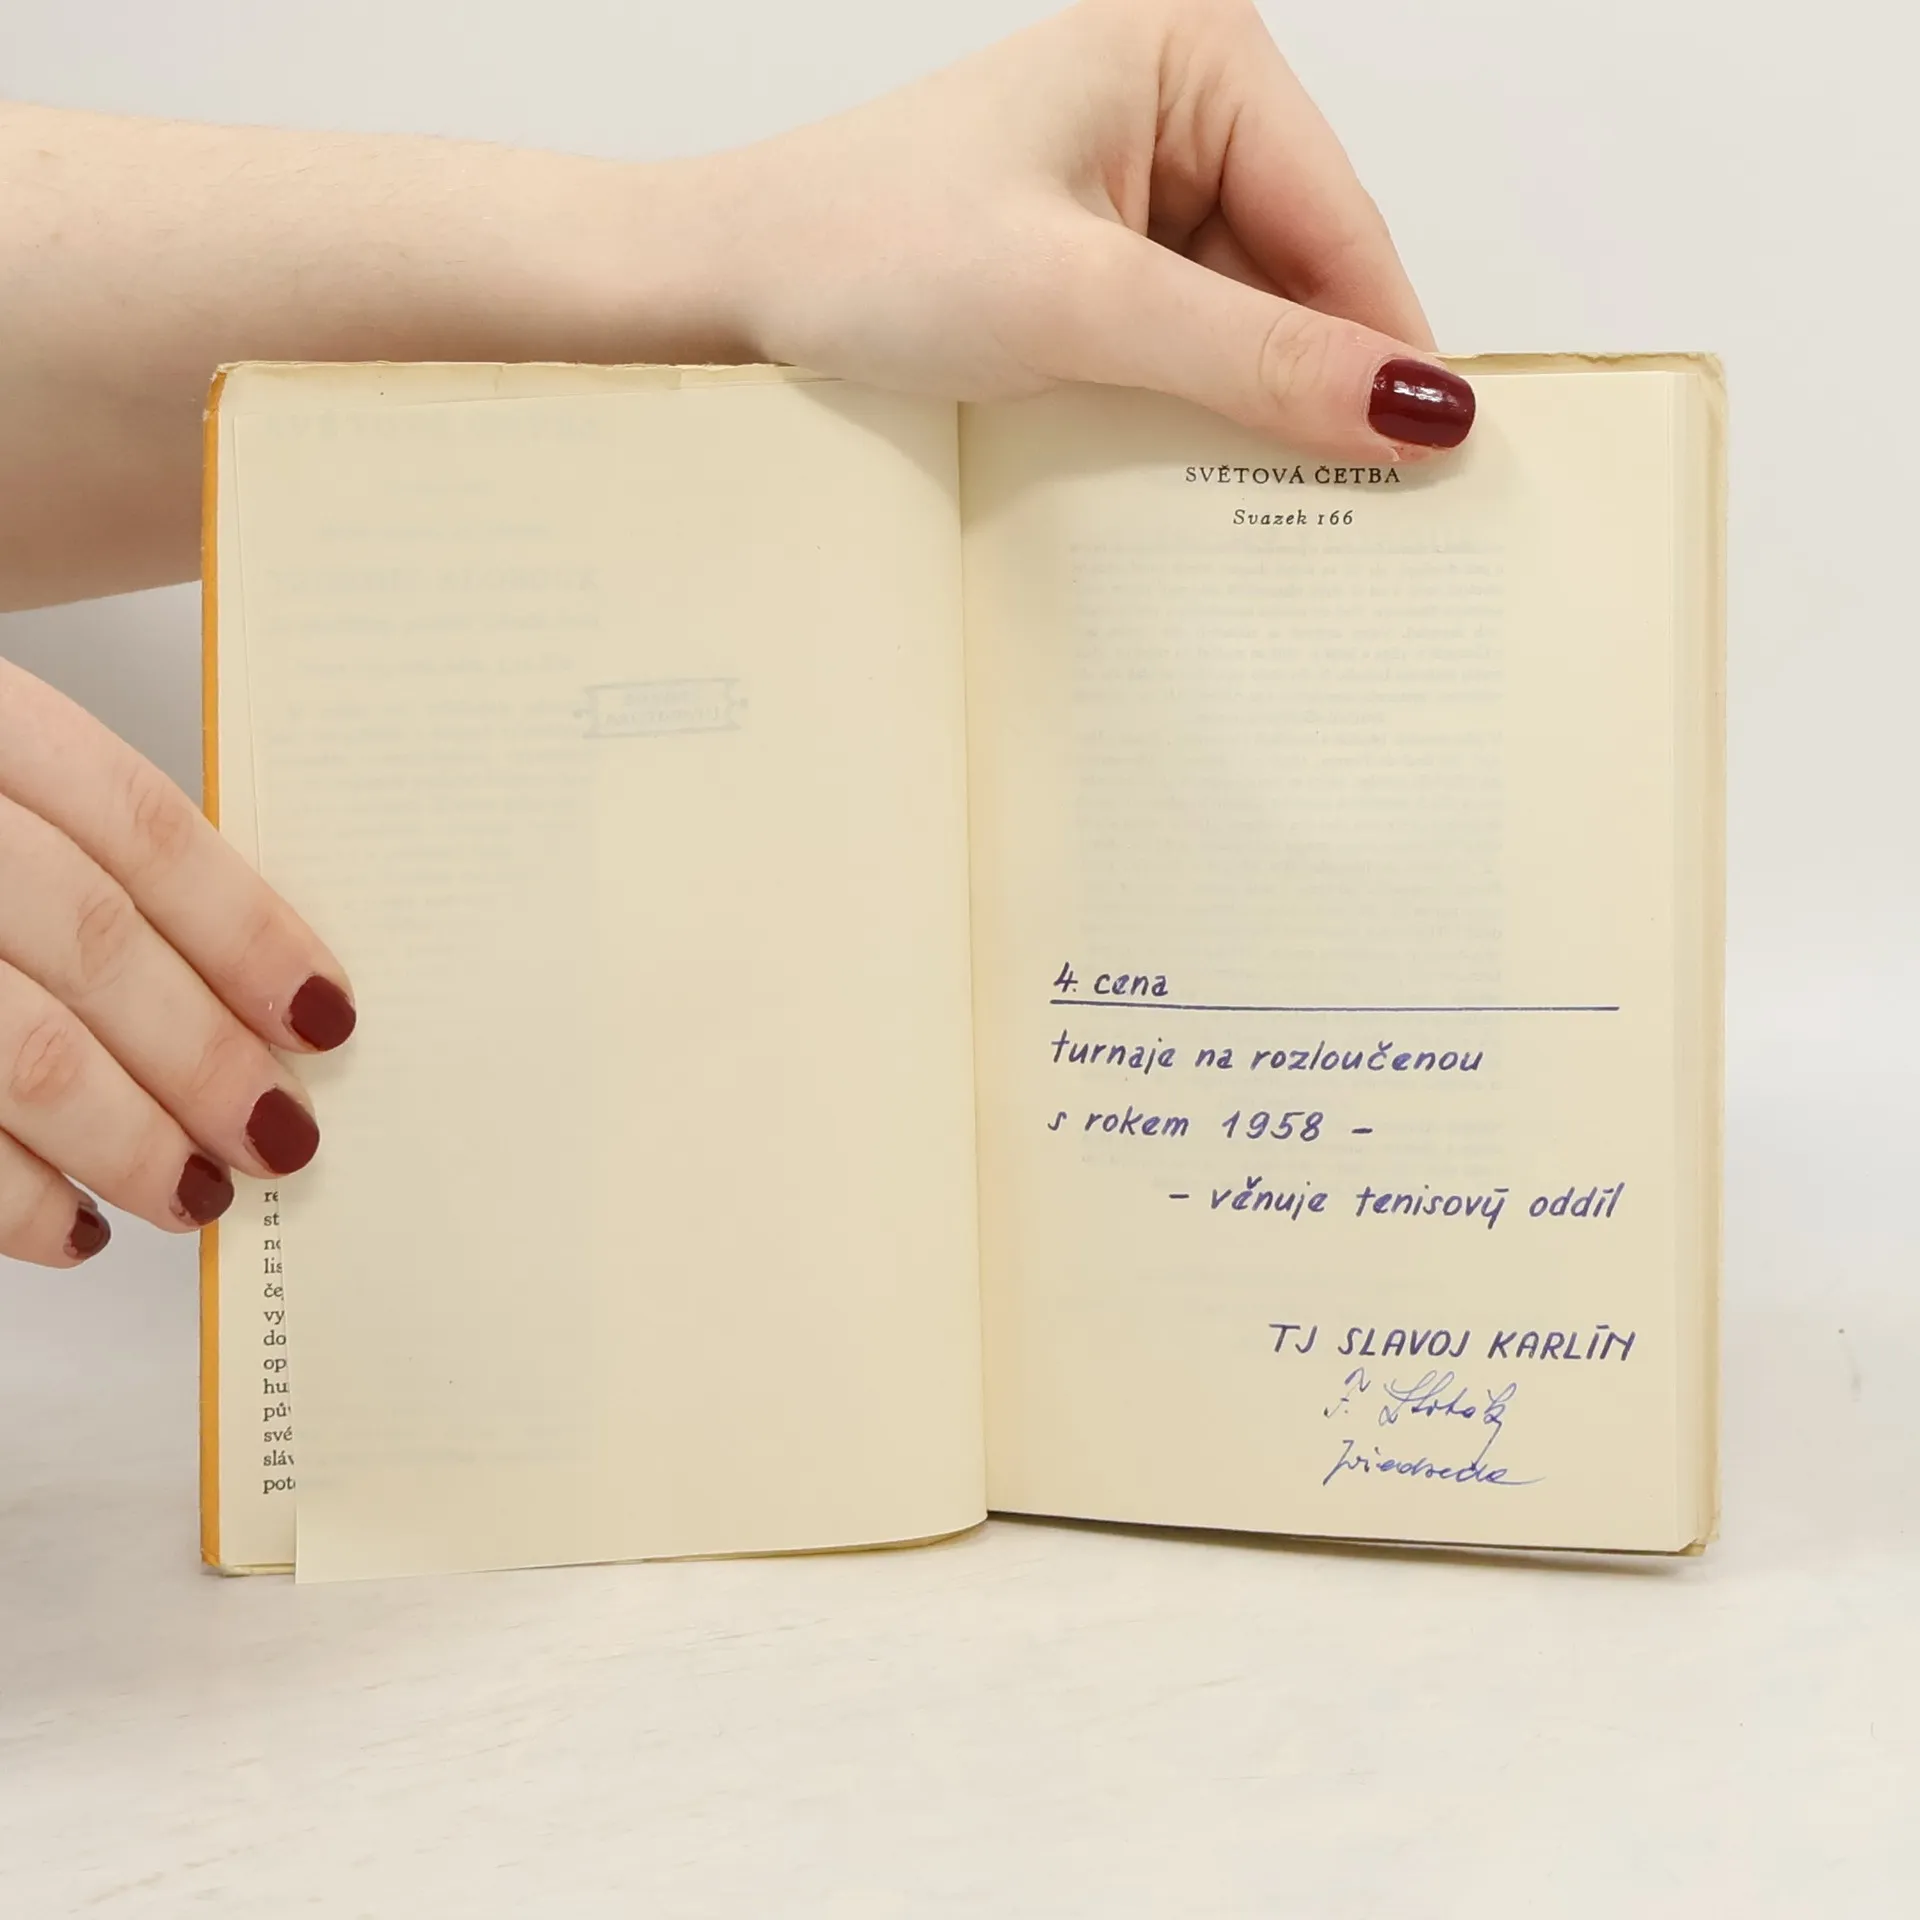 re
st
no
lis
čej
vy
do
op
hu
pův
své
sláv
pot
SVĚTOVÁ ČETBA
Svazek 166
4. cena
turnaje na rozloučenou
s rokem 1958 –
– věnuje tenisový oddíl
TJ SLAVOJ KARLÍN
F.
předseda